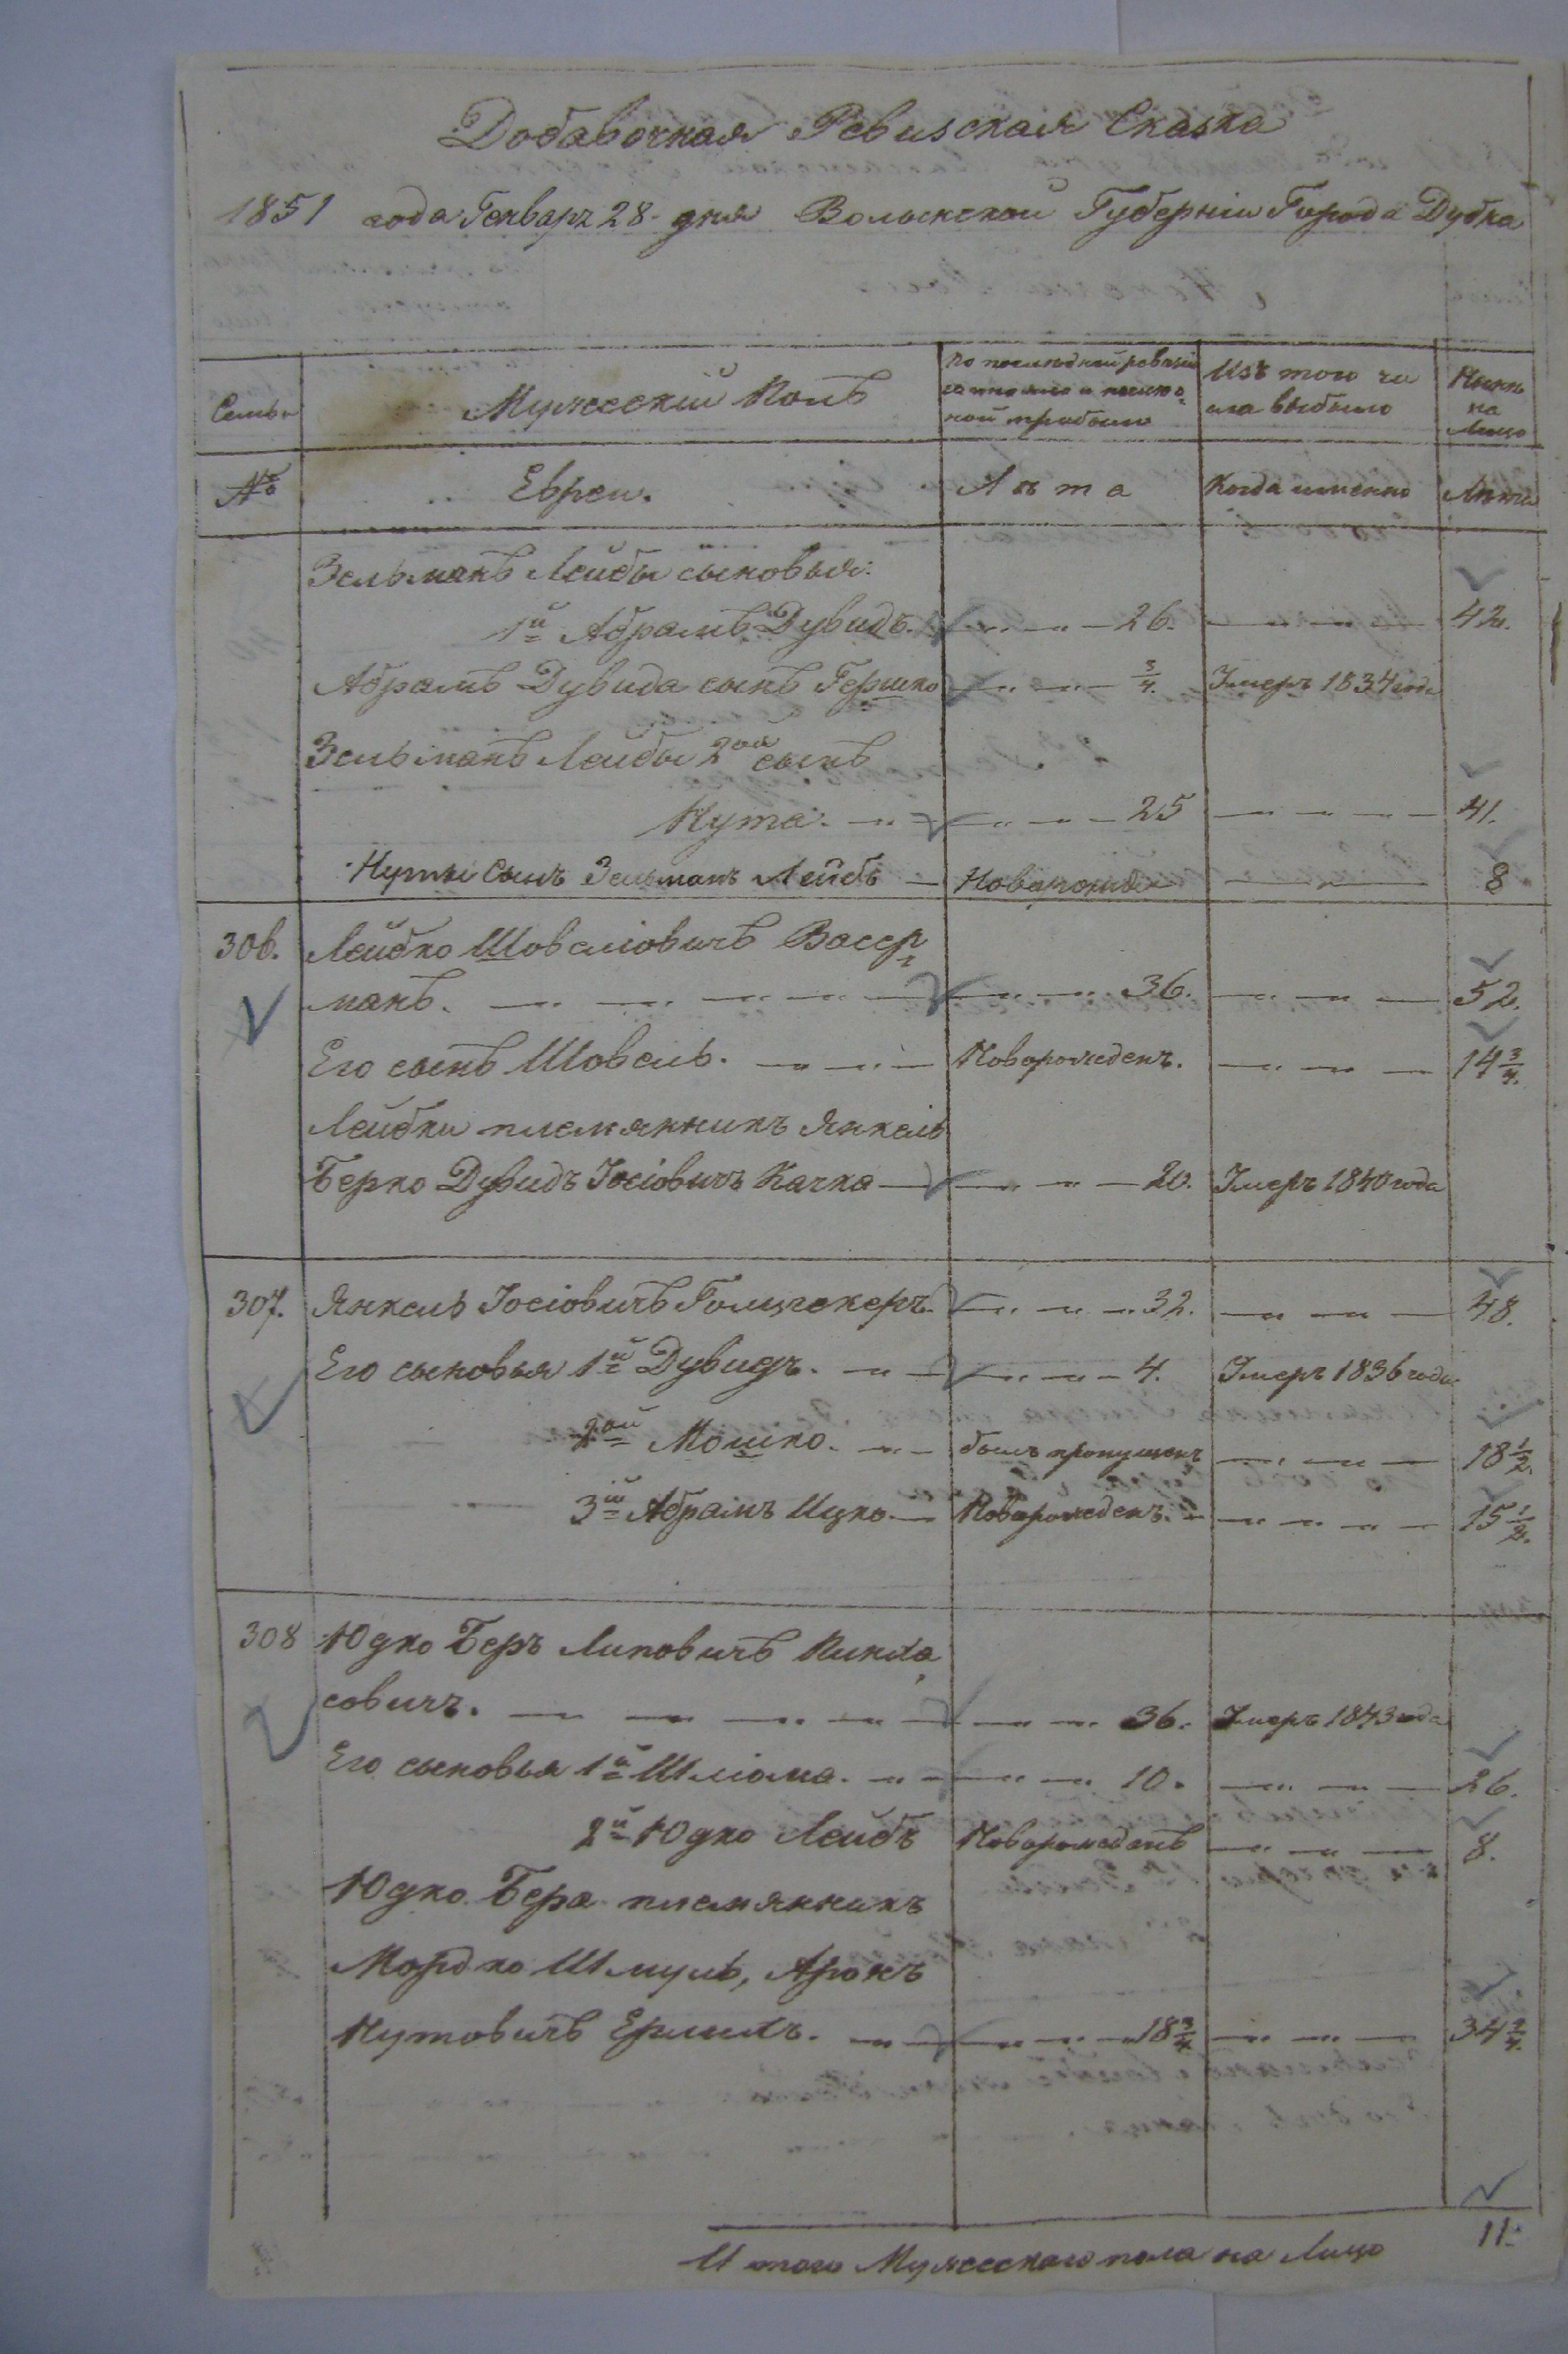 Добавочная Ревизская Сказка
1851 года Генваря 28 дня Волынской Губерніи Города Дубна
Семьи
Мужескій Полъ
По последней ревизіи состояло и после оной прибыло
Изъ того числа выбыло
Нынѣ на Лицо
№
Евреи.
Лѣта
Когда именно
Лѣта
Зельманъ Лейбы сыновья:
1й Абрамъ Дувидъ. 26. 42.
Абрамъ Дувида сынъ Гершко 3/4. Умеръ 1834 года
Зельманъ Лейбы 2ой сынъ
Нута. 25 41.
Нуты сынъ Зельманъ Лейбъ Новорожде 8
306. Лейбко Шовеліовичъ Васер
манъ. 36. 52.
Его сынъ Шовель. Новорожденъ. 14 3/4.
Лейбки племянникъ Янкель
Берко Дувидъ Іосіовичъ Качка 20. Умеръ 1840 года
307. Янкель Іосіовичъ Голцгекеръ. 32. 48.
Его сыновья 1й Дувидъ. 4. Умеръ 1836 года
2ой Мошко. былъ пропущенъ 18 1/2.
3й Абрамъ Ицко. Новорожденъ. 15 1/2.
308 Юдко Беръ Липовичъ Пинха
совичъ. 36. Умеръ 1843 года
Его сыновья 1й Шліома. 10. 26.
2й Юдко Лейбъ Новорожденъ 8.
Юдко Бера племянникъ
Мордко Шмуль, Аронъ
Нутовичъ Ермихъ. 18 3/4. 34 3/4.
Итого Мужескаго пола на Лицо 11.